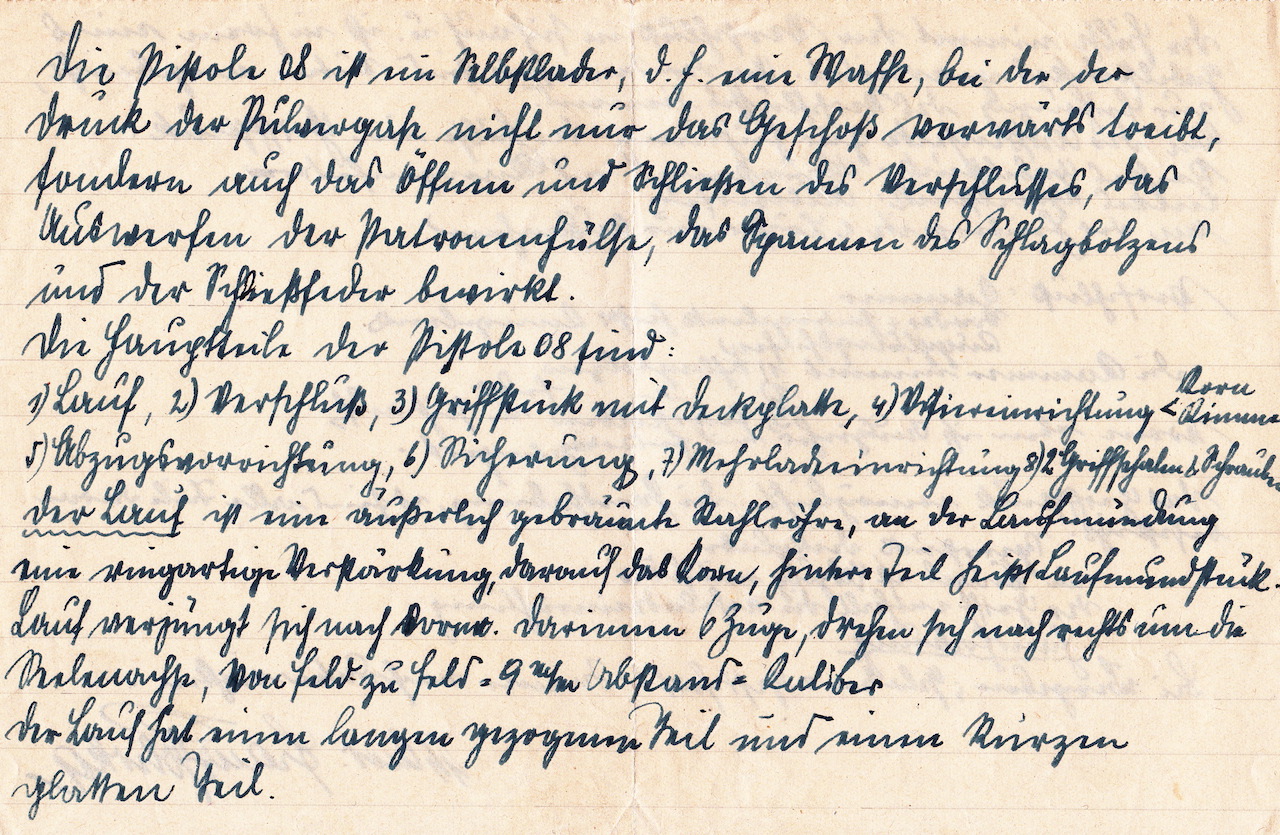 Die Pistole 08 ist ein Selbstlader, d. h. eine Waffe, bei der der
Druck der Pulvergase nicht nur das Geschoß vorwärts treibt,
sondern auch das Öffnen und Schließen des Verschlusses, das
Auswerfen der Patronenhülse, das Spannen des Schlagbolzens
und der Schließfeder bewirkt.
Die Hauptteile der Pistole 08 sind:
1) Lauf, 2) Verschluß, 3) Griffstück mit Deckplatte, 4) Visiereinrichtung < Korn
Kimme
5) Abzugsvorrichtung, 6) Sicherung, 7) Mehrladeeinrichtung 8) 2 Griffschalen & Schrauben
Der Lauf ist eine äußerlich gebräunte Stahlröhre, an der Laufmündung
eine ringartige Verstärkung, darauf das Korn, hintere Teil heißt Laufmundstück.
Lauf verjüngt sich nach vorne. Darinnen 6 Züge, drehen sich nach rechts um die
Seelenachse, von Feld zu Feld = 9 m/m Abstand = Kaliber
Der Lauf hat einen langen gezogenen Teil und einen kurzen
glatten Teil.